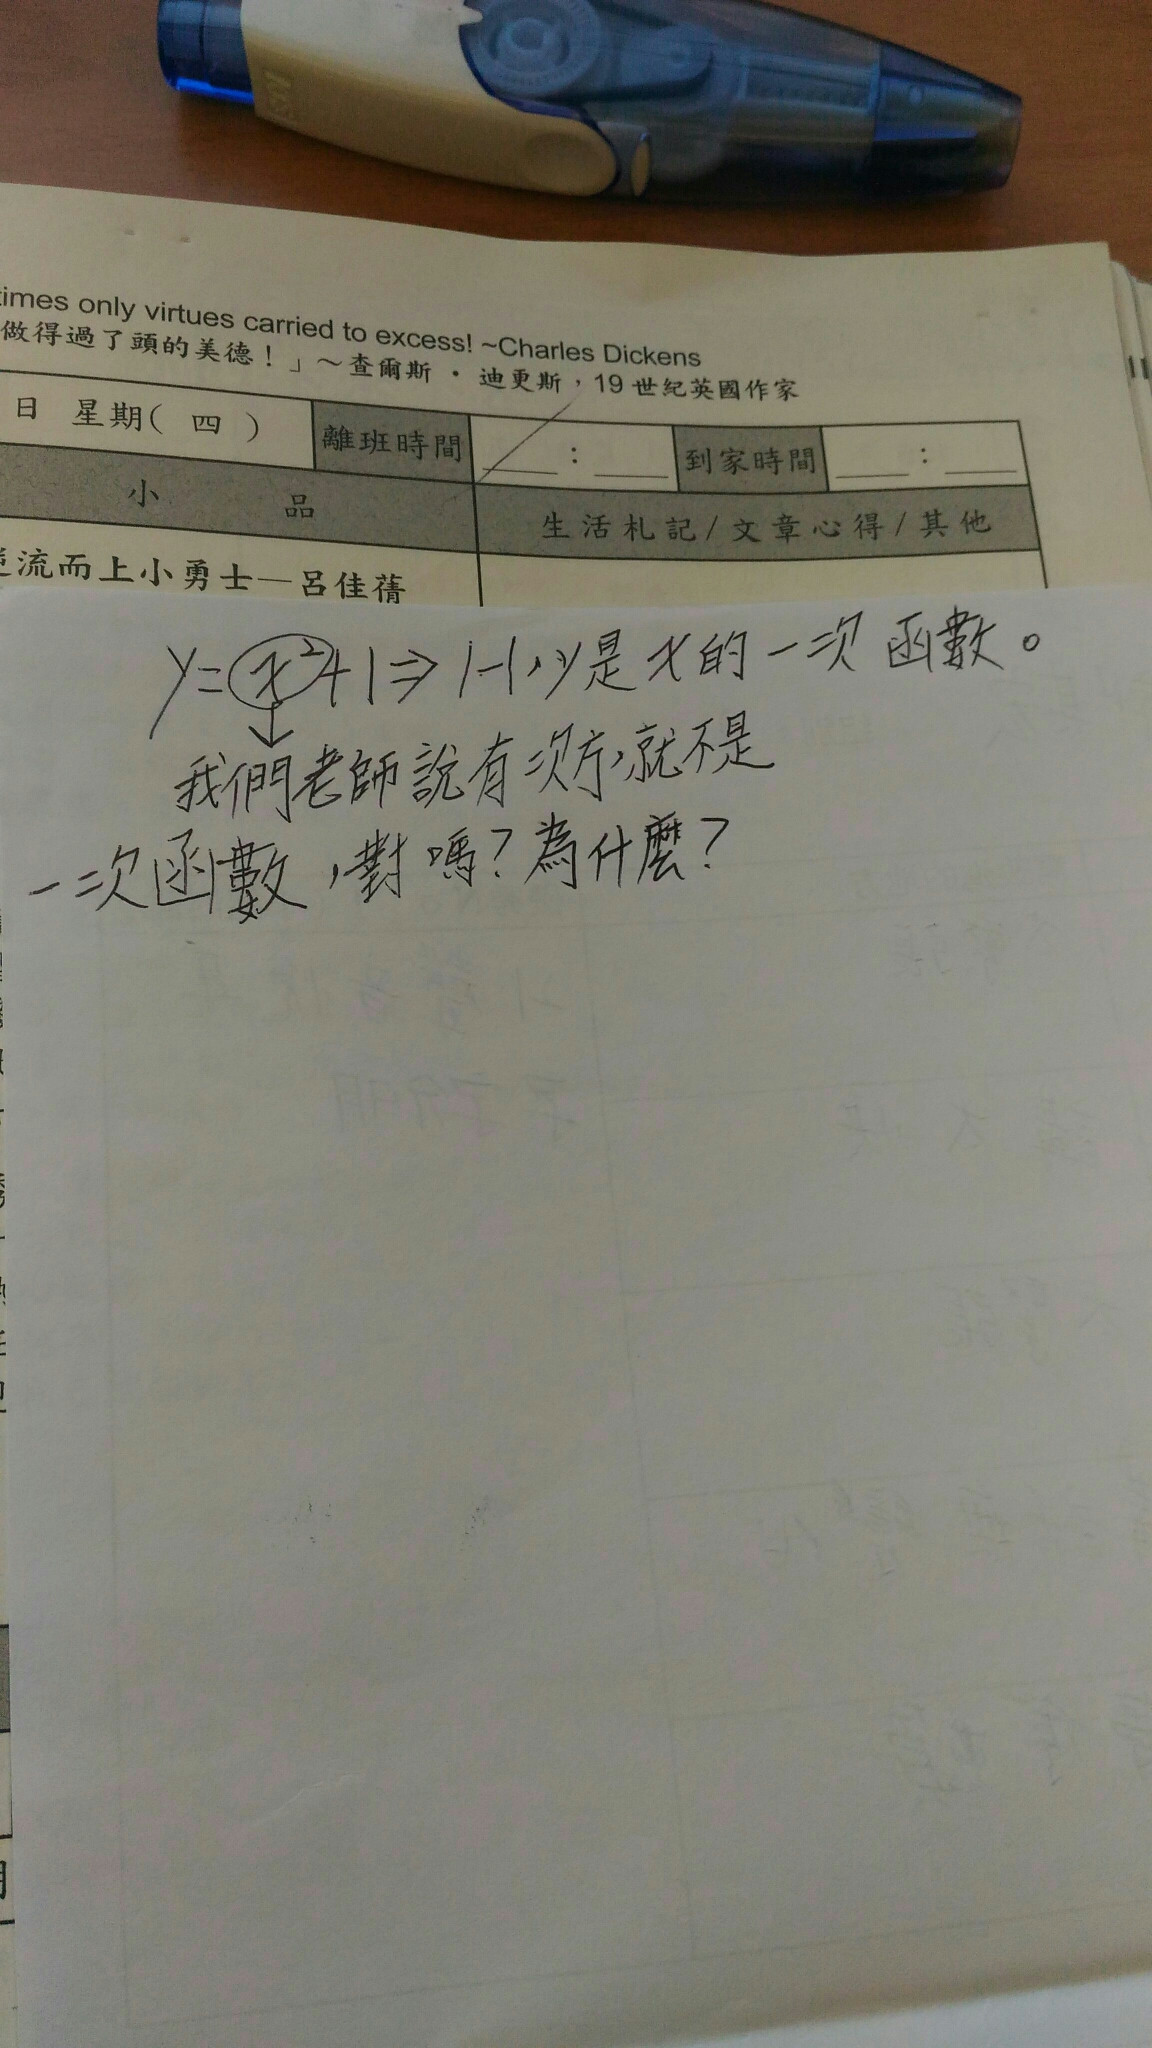 times only virtues carried to excess! ~Charles Dickens
做得過了頭的美德！」～查爾斯・迪更斯，19世紀英國作家
日 星期( 四 )
離班時間
__ : __
到家時間
__ : __
小 品
生活札記/文章心得/其他
流而上小勇士—呂佳蒨
y=x²+1⇒1-1,y是x的一次函數。
↓
我們老師說有次方,就不是
一次函數,對嗎?為什麼?